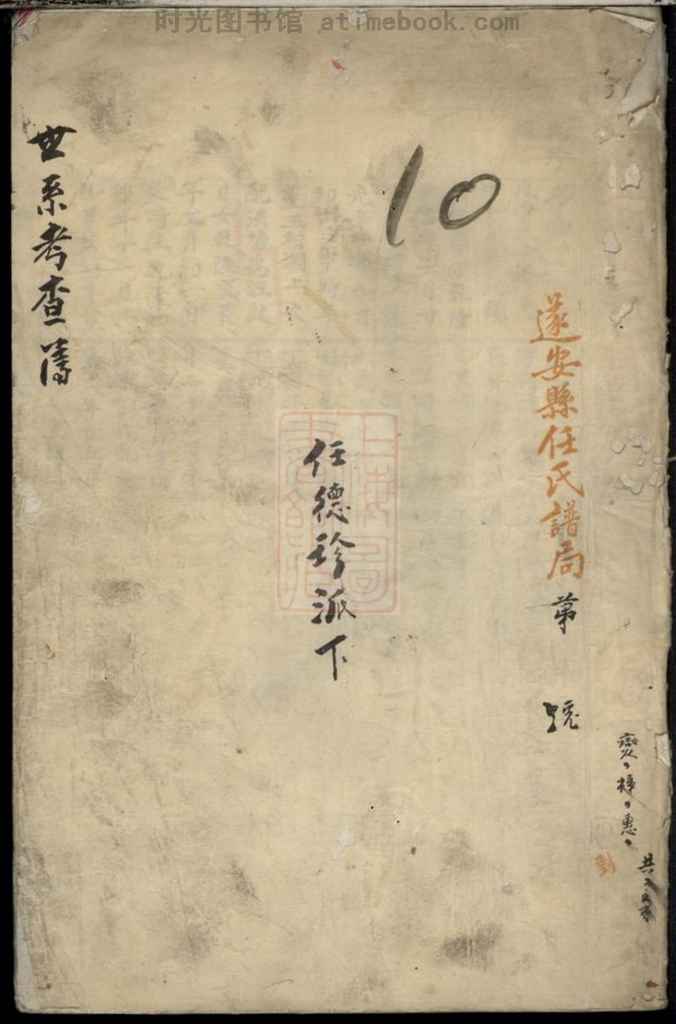 时光图书馆 atimebook.com
10
遂安縣任氏譜局
第 號
任德珍派下
世系考查簿